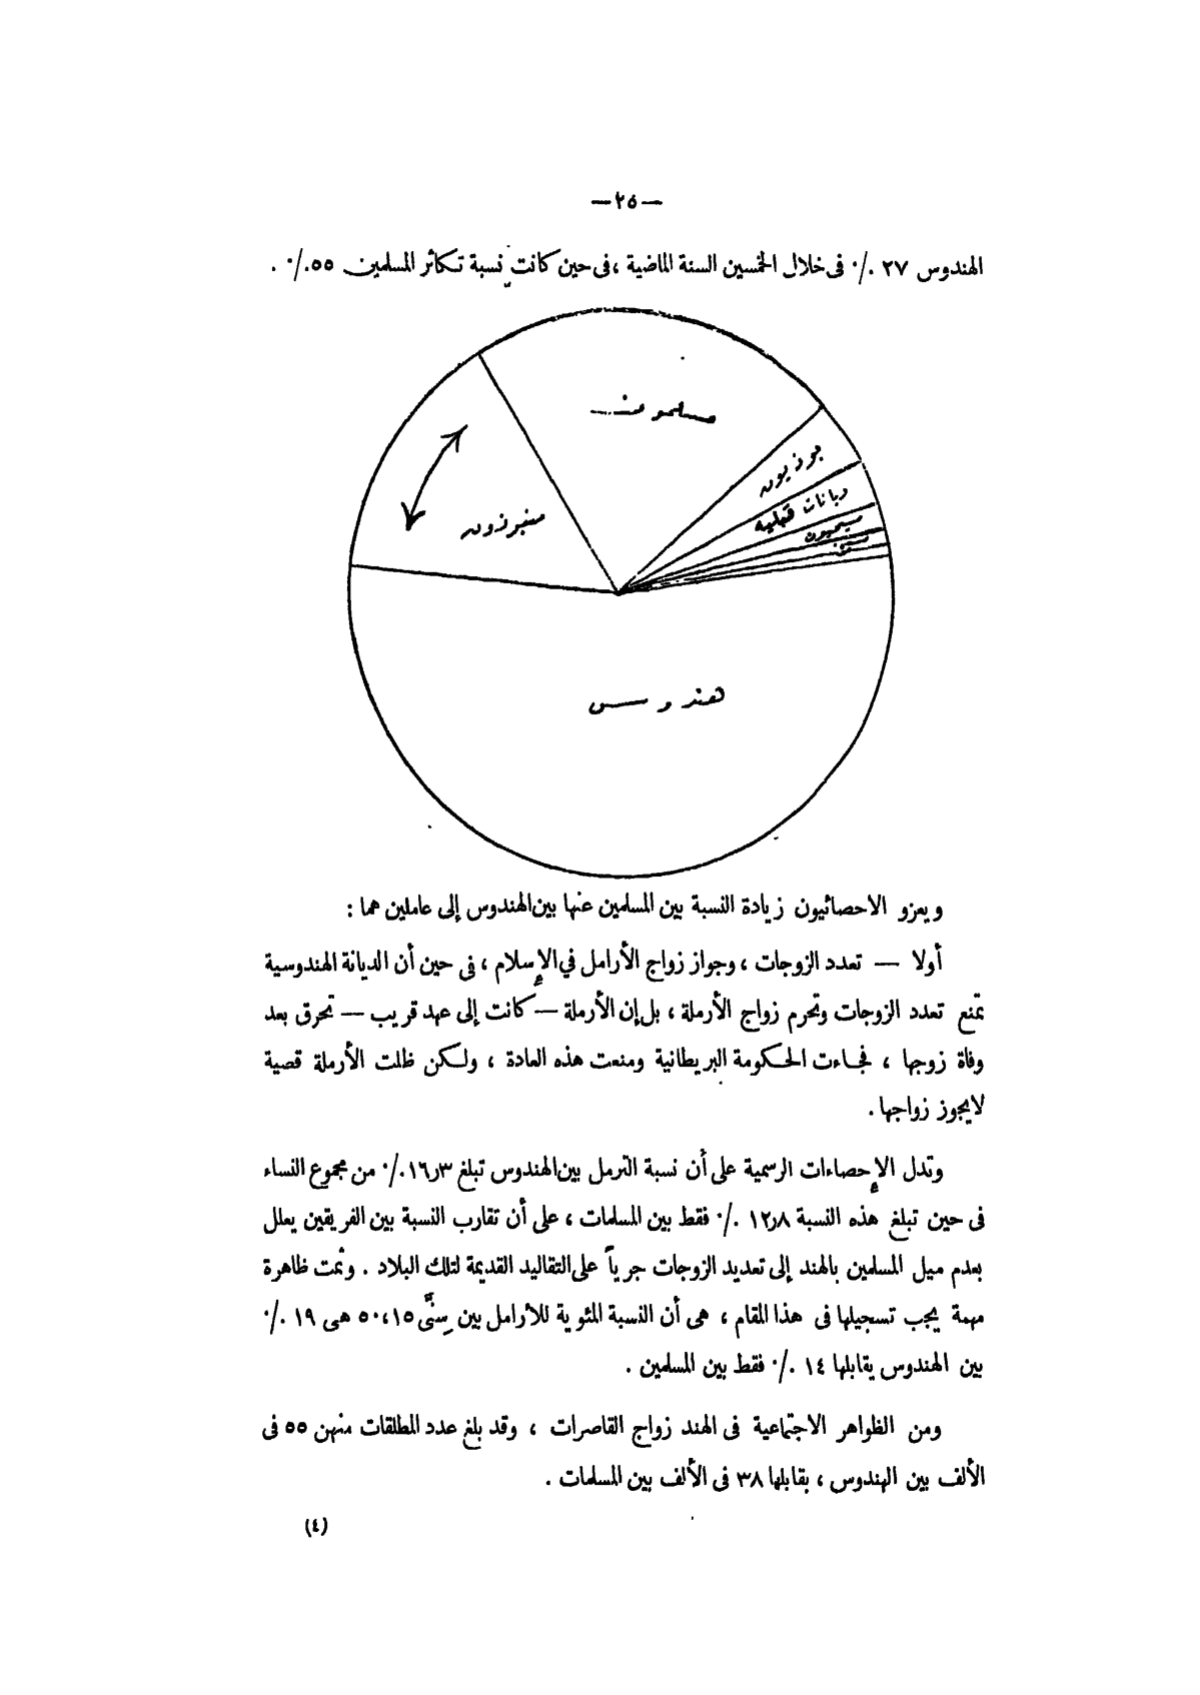 —٢٥—
الهندوس ٢٧ ./٠ فى خلال الخمسين السنة الماضية ، فى حين كانت نسبة تكاثر المسلمين ٥٥./٠ .
مسلمون
بوذيون
ديانات قبلية
مسيحيون
منبوذون
هندوس
ويعزو الاحصائيون زيادة النسبة بين المسلمين عنها بين الهندوس إلى عاملين هما :
أولا — تعدد الزوجات ، وجواز زواج الأرامل في الإسلام ، فى حين أن الديانة الهندوسية
تمنع تعدد الزوجات وتحرم زواج الأرملة ، بل إن الأرملة — كانت إلى عهد قريب — تحرق بعد
وفاة زوجها ، فجاءت الحكومة البريطانية ومنعت هذه العادة ، ولكن ظلت الأرملة قصية
لايجوز زواجها .
وتدل الإحصاءات الرسمية على أن نسبة الترمل بين الهندوس تبلغ ١٦٫٣./٠ من مجموع النساء
فى حين تبلغ هذه النسبة ١٢٫٨ ./٠ فقط بين المسلمات ، على أن تقارب النسبة بين الفريقين يعلل
بعدم ميل المسلمين بالهند إلى تعديد الزوجات جرياً على التقاليد القديمة لتلك البلاد . وثمت ظاهرة
مهمة يجب تسجيلها فى هذا المقام ، هى أن النسبة المئوية للأرامل بين سِنَّى ١٥،٥٠ هى ١٩ ./٠
بين الهندوس يقابلها ١٤ ./٠ فقط بين المسلمين .
ومن الظواهر الاجتماعية فى الهند زواج القاصرات ، وقد بلغ عدد المطلقات منهن ٥٥ فى
الألف بين الهندوس ، يقابلها ٣٨ فى الألف بين المسلمات .
(٤)